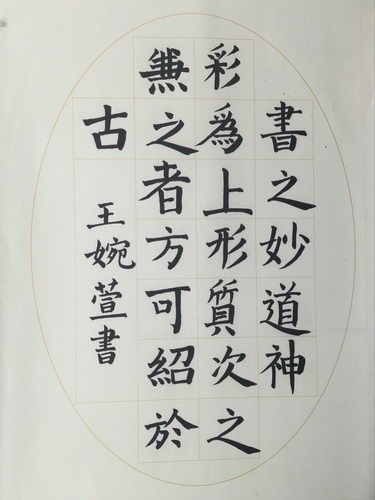 書之妙道神
彩爲上形質次之
兼之者方可紹於
古
王婉萱書